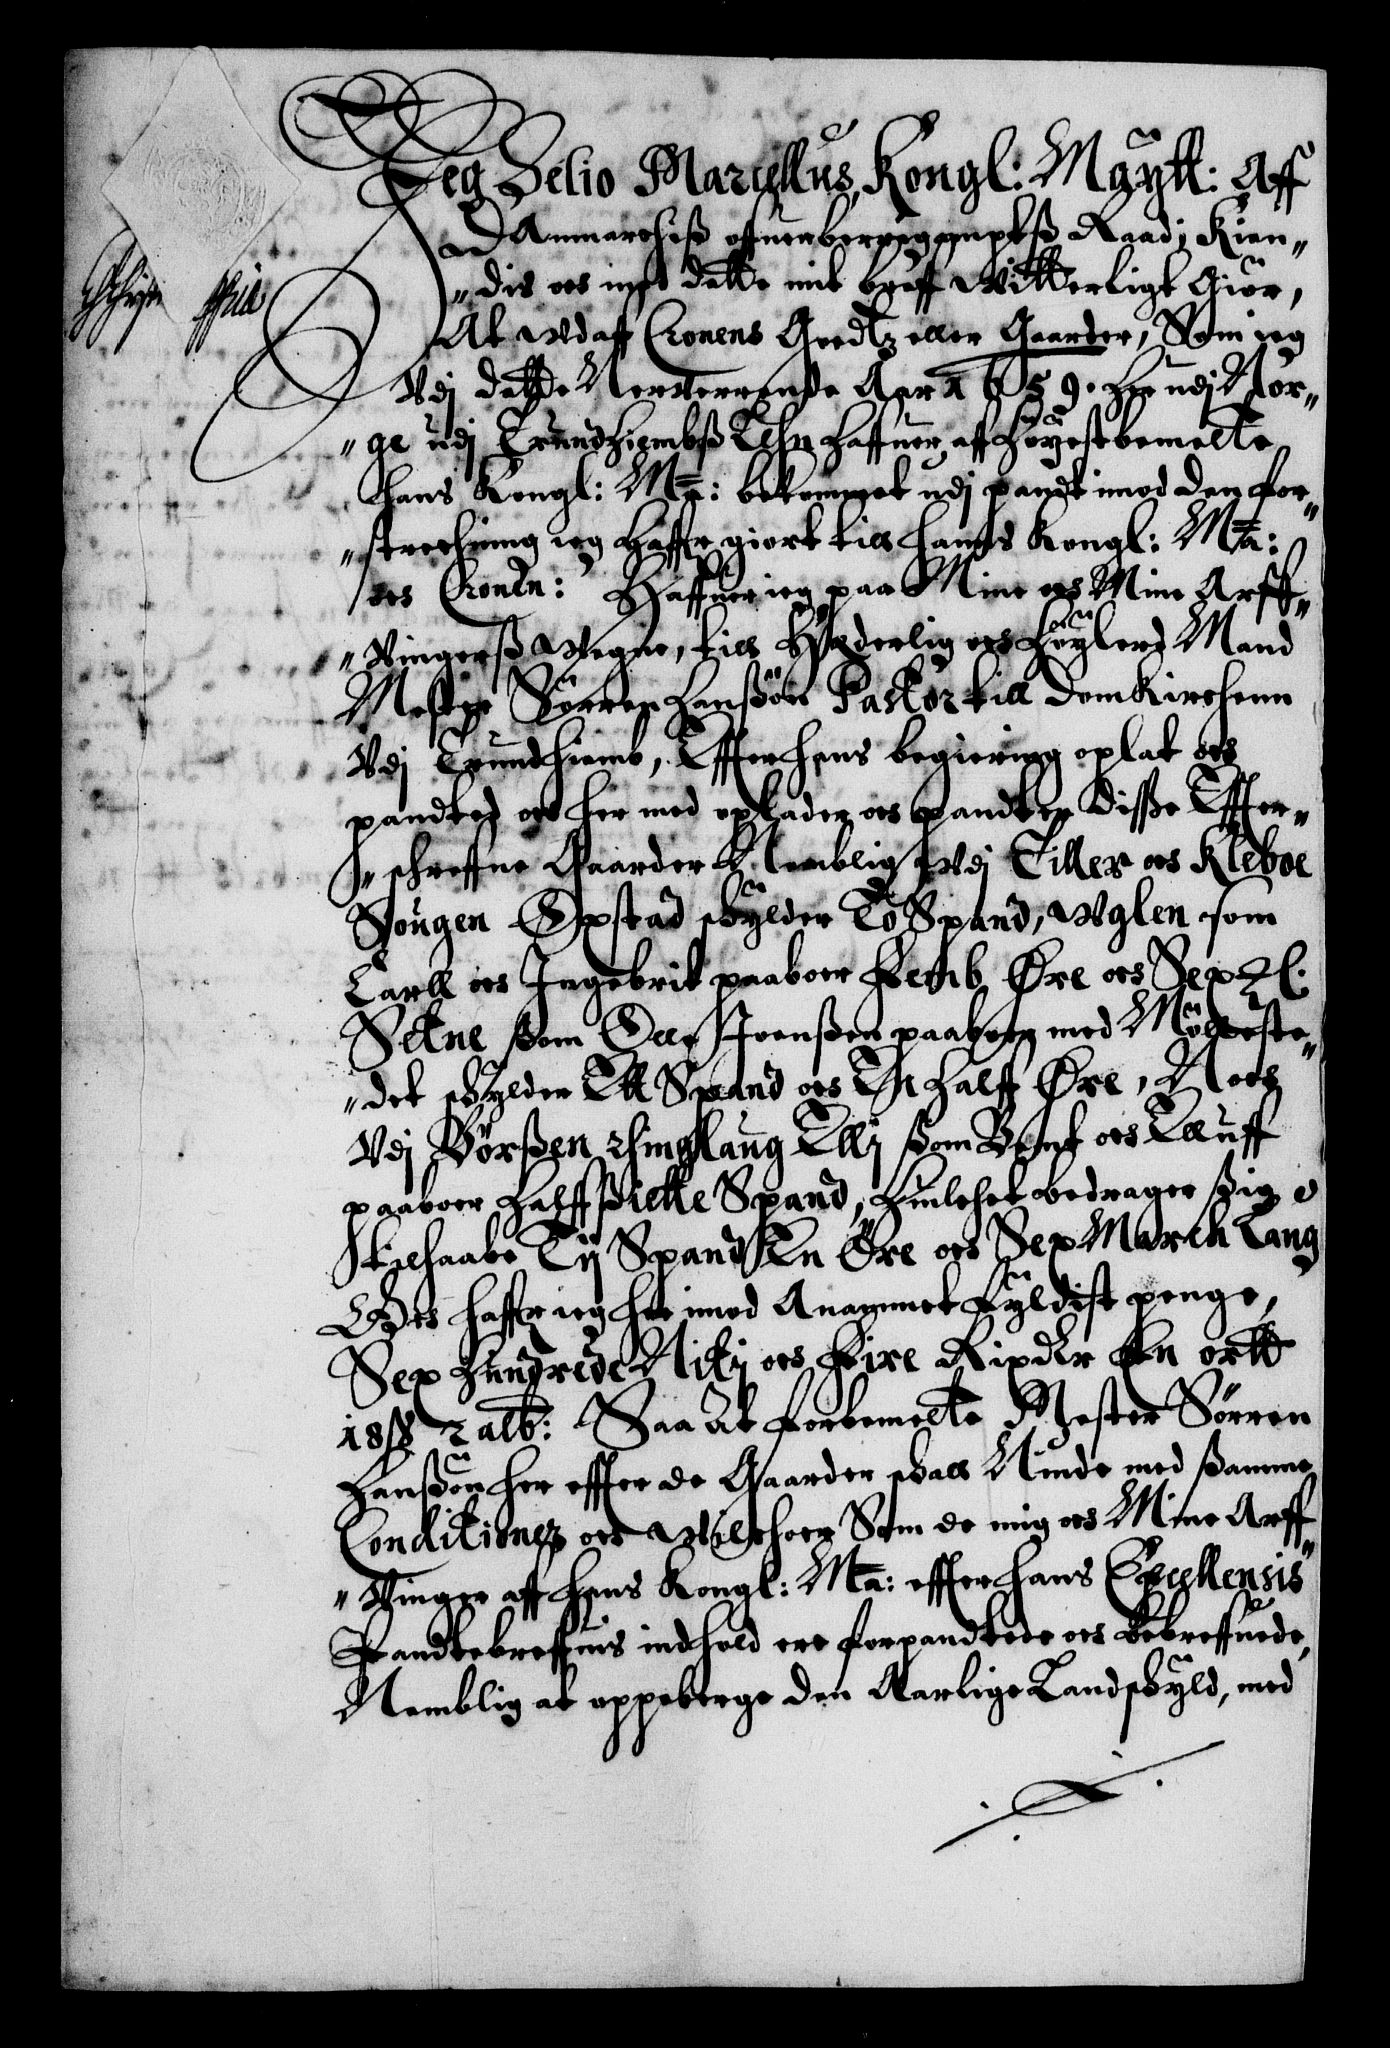 Jeg Selio Marcellus, Kongl: Maÿtt: Aff
Danmarchiß offuerbergamptß Raad; Kien„
„dis oc med dette mit breff Witterligt Giör,
At udaff Cronens Goedtz eller Gaarder, Som ieg
Udj dette Nerverrende Aar 1659. Her udj Nor„
„ge udj Trundhiembß Lehn haffuer aff höyestbemelte
Hans Kongl: Ma: bekommet udj pandt imod den for„
„strechning ieg haffr giort till hands Kongl: Ma:
oc Cronen: Haffuer ieg paa Mine oc Mine Arff„
„Vingerß Wegne, till Hæderlig oc Höylerd Mand
Mester Sörren Hanßön Pastor till Domkirchenn
Udj Trundhiemb, Effter hans begiering oplat oc
pandted oc her med oplader oc pandter disße Effter„
„schreffne Gaarder Nemblig Udj Tiller oc Kleboe
Sougen Opstad skÿlder To Spand, Uglen som
Carll oc Ingebrit paaboer Femb Øre oc Sex
Setne ßom Joenßen paaboer med Mölleste„
„det skÿlder Ett Spand oc En Halff Øre, Noch
Udj Börßen thinglaug Elli ßom Bent oc Eluff
paaboer halff ßiette Spand, huilchet bedrager ßig
tilsaabe Tij Spand En Øre oc Sex March Laug
Oc haffr ieg her imod Anammet fÿldist penge,
Sex Hundrede Nitij oc Fire Rixdr En ortt
18 ß 2 alb: Saa At forbemelte Mester Sörren
Hanßön her effter de Gaarder skall Niude med ßamme
Conditioner oc Vilchoer Som de mig oc Mine Arff„
„Vinger aff Hans Kongl: Ma: effter hans Excellensis
Pandtebreffuis indhold ere forpandtede oc bebreffuede,
Nemblig at oppeberge den Aarlige Landskÿld, med